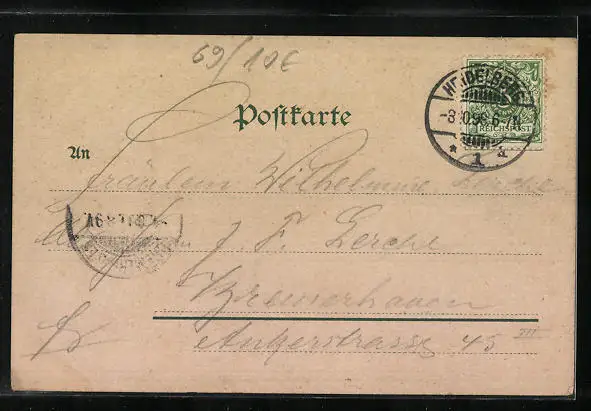 69/10€
Postkarte
HEIDELBERG
-3.10.98. 6-7N.
* 1 a
REICHSPOST
An
Fräulein Wilhelmine Lerche
J. F. Lerche
Bremerhaven
Ankerstrasse 45 III